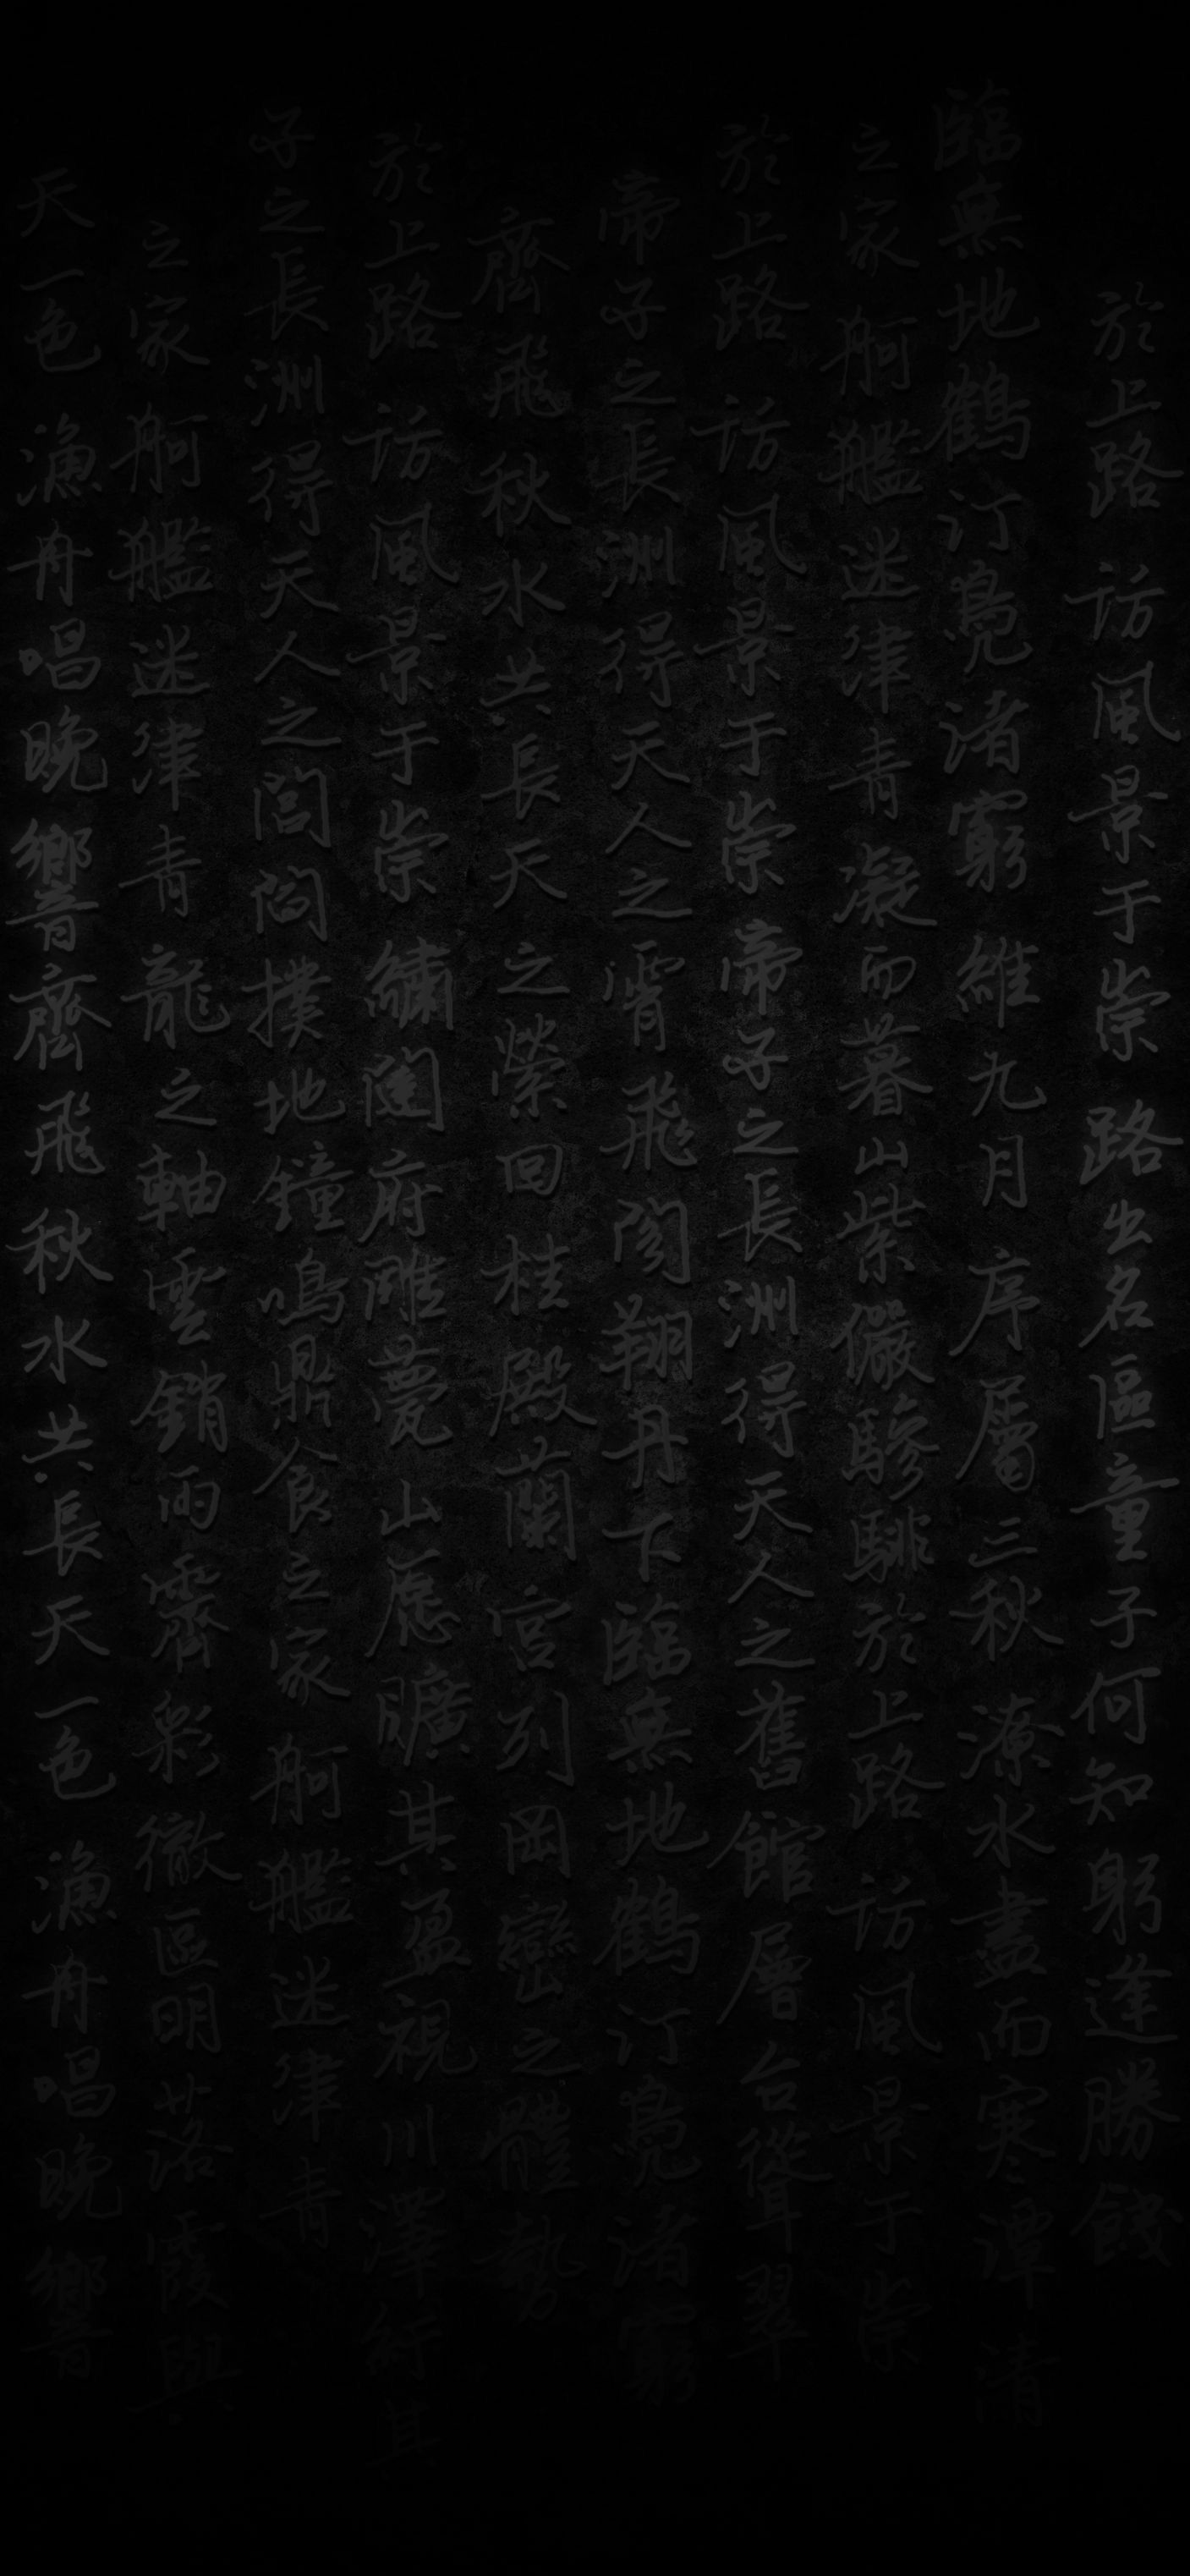 於上路 訪風景于崇 路出名區童子何知躬逢勝餞
臨無地鶴汀鳧渚窮 維九月 序屬三秋 潦水盡而寒潭清
之家舸艦迷津青 凝而暮山紫儼驂騑於上路 訪風景于崇
於上路 訪風景于崇 帝子之長洲得天人之舊館層台聳翠
帝子之長洲得天人之 飛閣翔丹下臨無地鶴汀鳧渚窮
齊飛秋水共長天 之縈回桂殿蘭宮列岡巒之體勢
於上路 訪風景于崇 繡闥府雕甍山愿曠其盈視川澤紆其
子之長洲得天人之閭閻撲地鐘鳴鼎食之家 舸艦迷津青
之家舸艦迷津青龍之軸雲銷雨霽彩徹區明落霞與
天一色 漁舟唱晚響齊飛秋水共長天一色 漁舟唱晚響